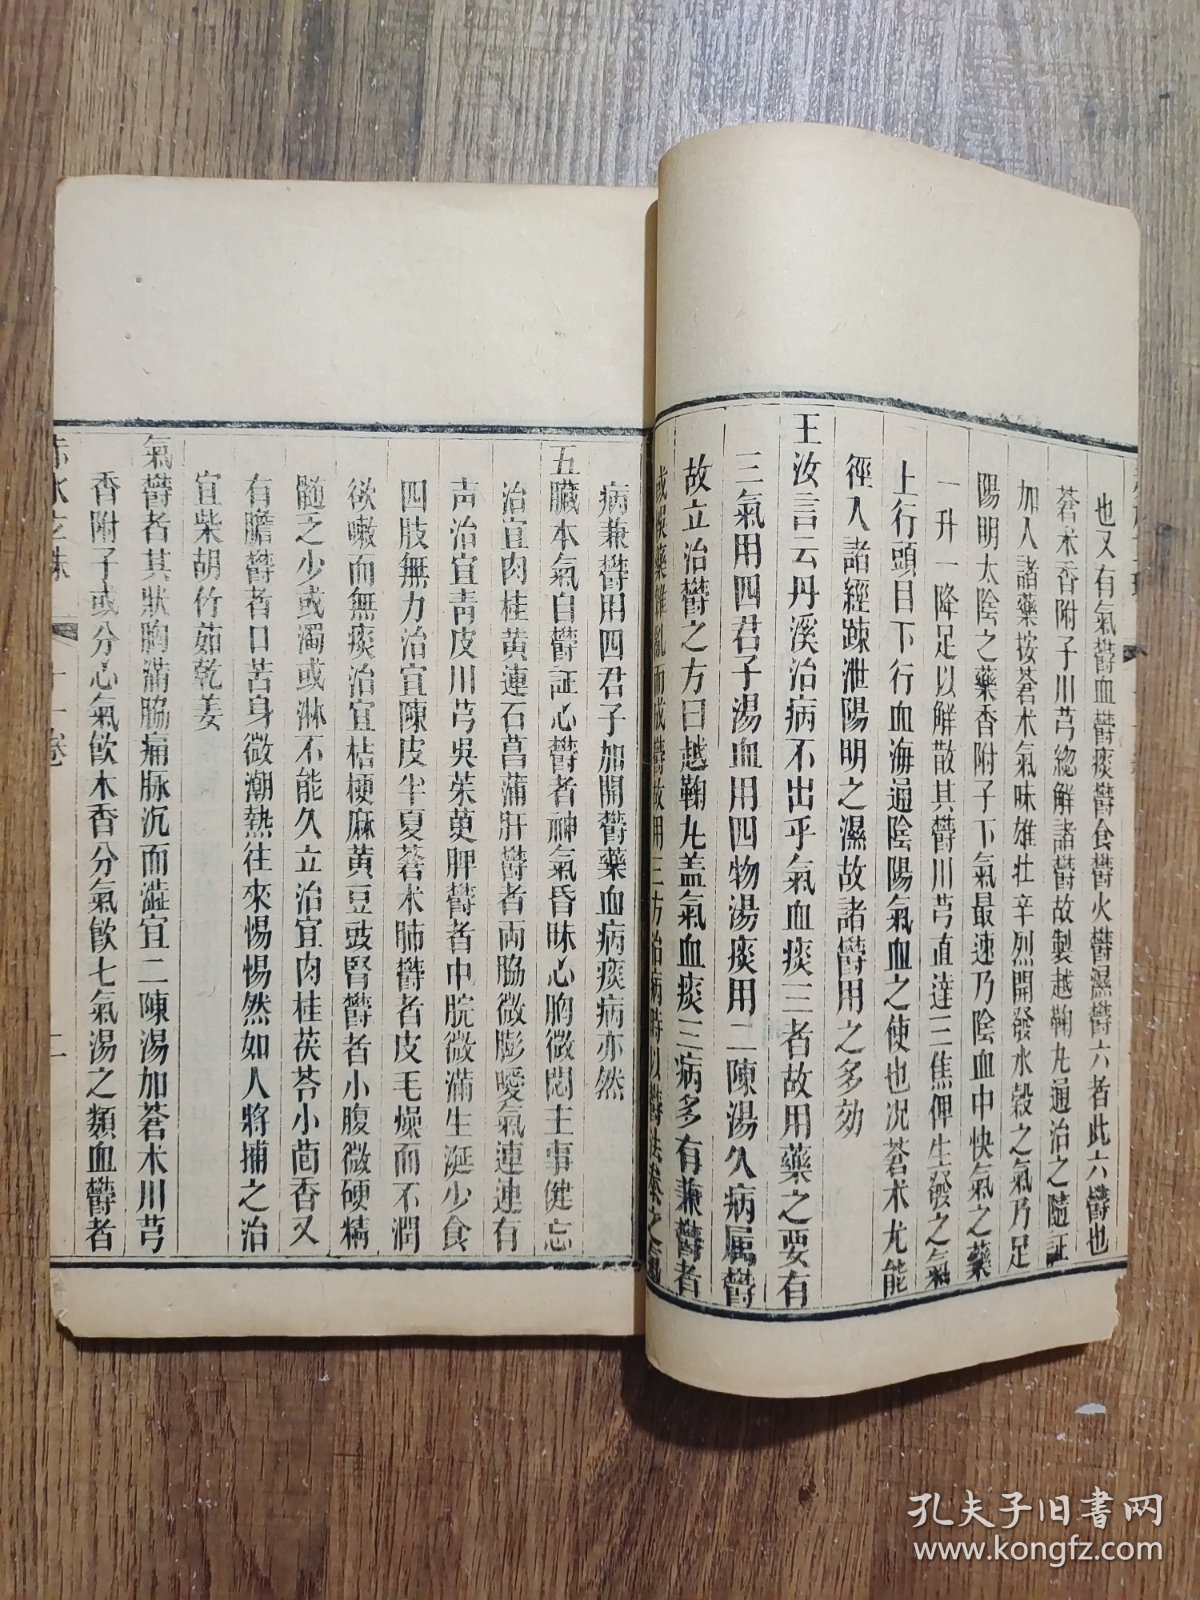 也又有氣鬱血鬱痰鬱食鬱火鬱濕鬱六者此六鬱也
蒼朮香附子川芎總解諸鬱故製越鞠丸通治之隨証
加入諸藥按蒼朮氣味雄壯辛烈開發水穀之氣乃足
陽明太陰之藥香附子下氣最速乃陰血中快氣之藥
一升一降足以解散其鬱川芎直達三焦俾生發之氣
上行頭目下行血海通陰陽氣血之使也况蒼术尤能
徑入諸經踈泄陽明之濕故諸鬱用之多効
王汝言云丹溪治病不出乎氣血痰三者故用藥之要有
三氣用四君子湯血用四物湯痰用二陳湯久病属鬱
故立治鬱之方曰越鞠丸盖氣血痰三病多有兼鬱者
或誤藥雜亂而成鬱故用三方治病時以鬱法兼之氣
病兼鬱用四君子加開鬱藥血病痰病亦然
五臟本氣自鬱証心鬱者神氣昏昧心胸微悶主事健忘
治宜肉桂黄連石菖蒲肝鬱者両脇微膨噯氣連連有
声治宜青皮川芎吳茱萸脾鬱者中脘微滿生涎少食
四肢無力治宜陳皮半夏蒼朮肺鬱者皮毛燥而不潤
欲嗽而無痰治宜桔梗麻黄豆豉腎鬱者小腹微硬精
髄乏少或濁或淋不能久立治宜肉桂茯苓小茴香又
有膽鬱者口苦身微潮熱往來惕惕然如人將捕之治
宜柴胡竹茹乾姜
氣鬱者其狀胸滿脇痛脉沉而澁宜二陳湯加蒼朮川芎
香附子或分心氣飲木香分氣飲七氣湯之類血鬱者
赤水玄珠 十一卷 二
孔夫子旧书网
www.kongfz.com